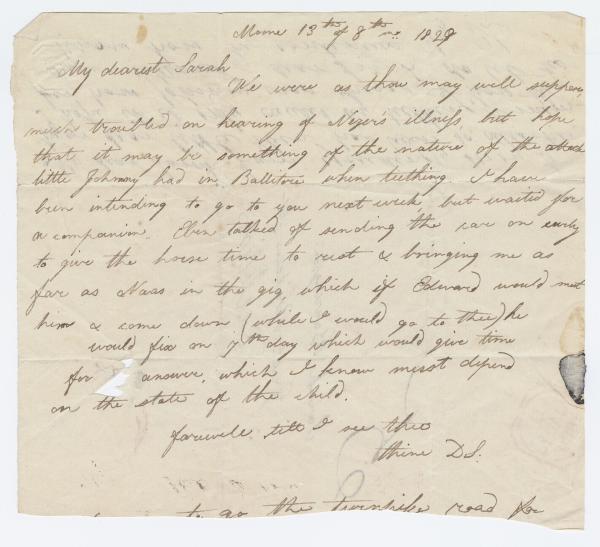 Mone 13th of 8th mo. 1829
My dearest Sarah
We were as thou may well suppose,
much troubled on hearing of illness, but hope
that it may be something of the nature of the attack
little Johnny had in Ballitore when teething. I have
been intending to go to you next week, but waited for
a companion. Eben talked of sending the car on early
to give the horse time to rest & bringing me as
far as Naas in the gig, which if Edward would meet
him & come down, (while I would go to thee) he
would fix on 7th day which would give time
for answer, which I know must depend
on the state of the child.
farewell till I see thee
thine D S.
to go the turnpike road for